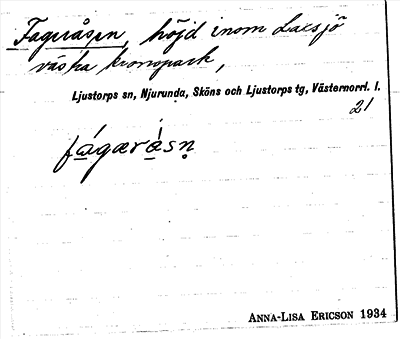 Fageråsen, höjd inom Laxsjö
västra kronopark,
Ljustorps sn, Njurunda, Sköns och Ljustorps tg, Västernorrl. l.
21
fágæràsn̥
ANNA-LISA ERICSON 1934